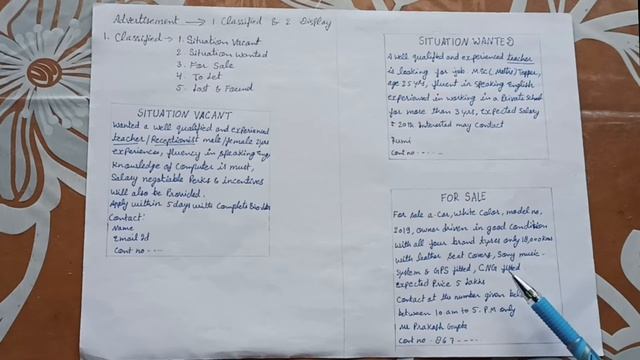 Advertisement → 1 Classified & 2 Display
1. Classified → 1. Situation Vacant
2 Situation Wanted
3. For Sale
4. To Let
5. Lost & Found
SITUATION VACANT
Wanted a well qualified and experienced
teacher/Receptionist male/female 2yrs
experiences, fluency in speaking Eng,
Knowledge of Computer is must,
Salary negotiable Perks & incentives
will also be Provided.
Apply within 5 days with Complete Bio data
Contact:
Name
Email Id
Cont no -----
SITUATION WANTED
A well qualified and experienced teacher
is looking for job. M.Sc (Maths) Topper,
age 25 yrs, fluent in speaking English
experienced in working in a Private School
for more than 3 yrs, expected Salary
₹ 20th Interested may Contact
Cont no -----
FOR SALE
For sale a car, white color, model no,
2019, owner driven in good condition
with all four brand tyres only 18,000 kms
with leather seat covers, Sony music-
system & GPS fitted, CNG fitted
expected Price 5 Lakhs
Contact at the number given
between 10 am to 5. P.M only
Mr Prakash Gupta
Cont no - 867 ----